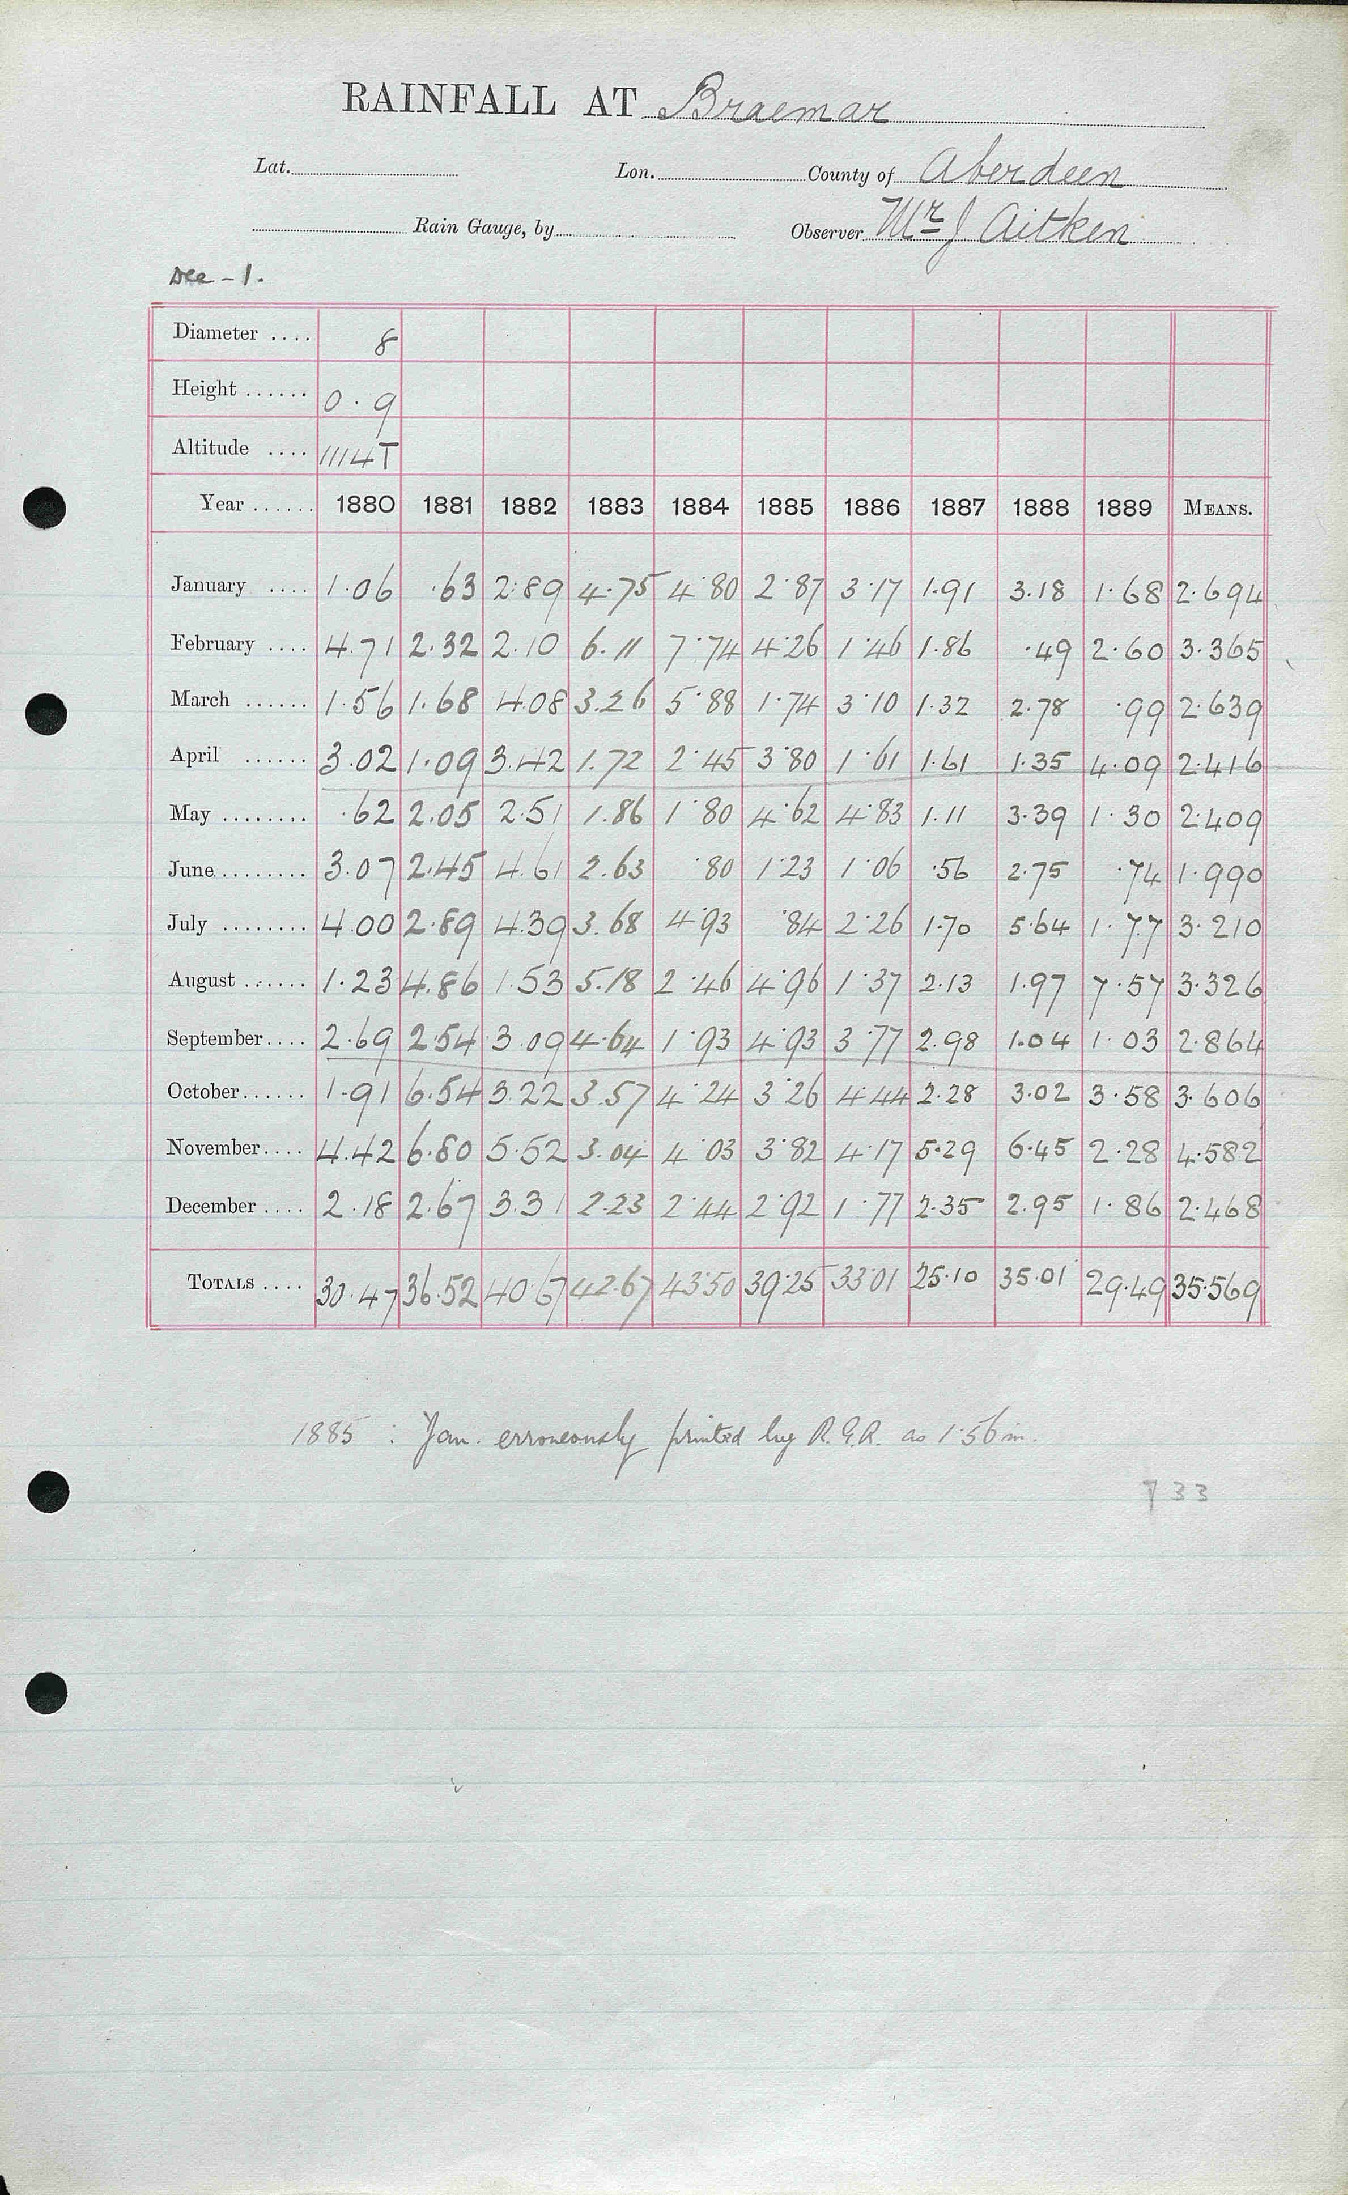 RAINFALL AT Braemar
Lat. Lon. County of Aberdeen
Rain Gauge, by Observer Mr J Aitken
Dee - 1.
Diameter .... 8
Height ...... 0.9
Altitude .... 1114T
Year ...... 1880 1881 1882 1883 1884 1885 1886 1887 1888 1889 MEANS.
January .... 1.06 .63 2.89 4.75 4.80 2.87 3.17 1.91 3.18 1.68 2.694
February .... 4.71 2.32 2.10 6.11 7.74 4.26 1.46 1.86 .49 2.60 3.365
March ...... 1.56 1.68 4.08 3.26 5.88 1.74 3.10 1.32 2.78 .99 2.639
April ...... 3.02 1.09 3.42 1.72 2.45 3.80 1.61 1.61 1.35 4.09 2.416
May ........ .62 2.05 2.51 1.86 1.80 4.62 4.83 1.11 3.39 1.30 2.409
June ........ 3.07 2.45 4.61 2.63 .80 1.23 1.06 .56 2.75 .74 1.990
July ........ 4.00 2.89 4.39 3.68 4.93 .84 2.26 1.70 5.64 1.77 3.210
August ...... 1.23 4.86 1.53 5.18 2.46 4.96 1.37 2.13 1.97 7.57 3.326
September .... 2.69 2.54 3.09 4.64 1.93 4.93 3.77 2.98 1.04 1.03 2.864
October ...... 1.91 6.54 3.22 3.57 4.24 3.26 4.44 2.28 3.02 3.58 3.606
November .... 4.42 6.80 5.52 3.04 4.03 3.82 4.17 5.29 6.45 2.28 4.582
December .... 2.18 2.67 3.31 2.23 2.44 2.92 1.77 2.35 2.95 1.86 2.468
TOTALS .... 30.47 36.52 40.67 42.67 43.50 39.25 33.01 25.10 35.01 29.49 35.569
1885 : Jan. erroneously printed by R.G.R. as 1.56 in.
T 33